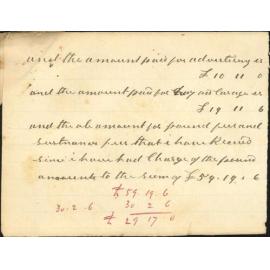 and the amount paid for advertising is
£ 10 11 0
and the amount paid for and Carage is
£ 19 11 6
and the amount for pound fees and
Sustinance fees that i have Received
Since i have had Charge of the pound
amounts to the Sum of £59.19.6
£59 19.6
30.2.6 30 2 6
£ 29 17 0